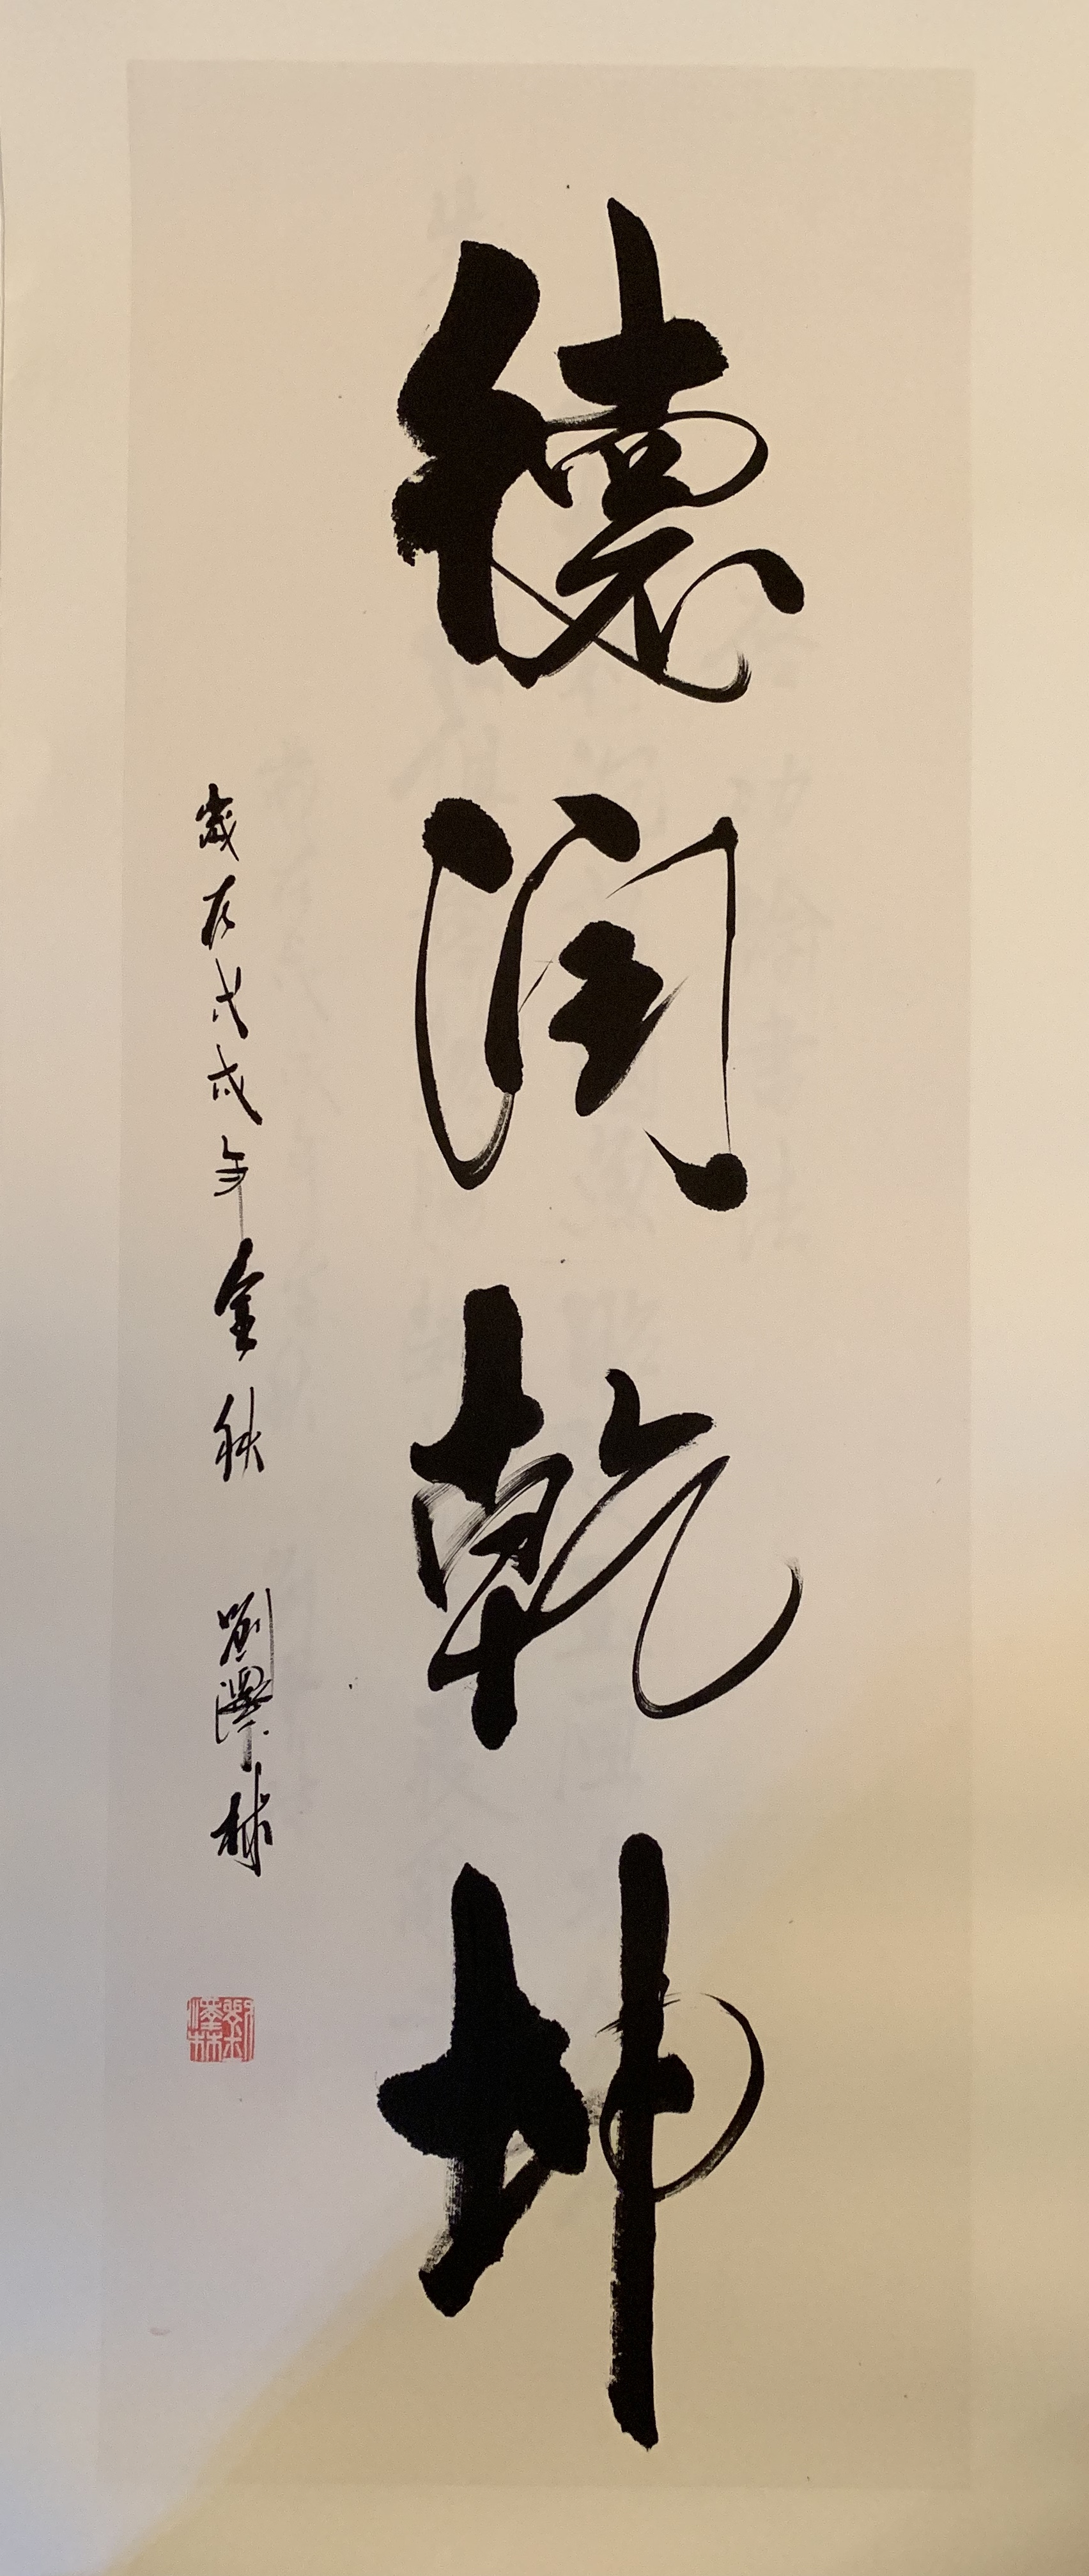 德润乾坤
歲在戊戌年金秋 劉澤林
劉澤林